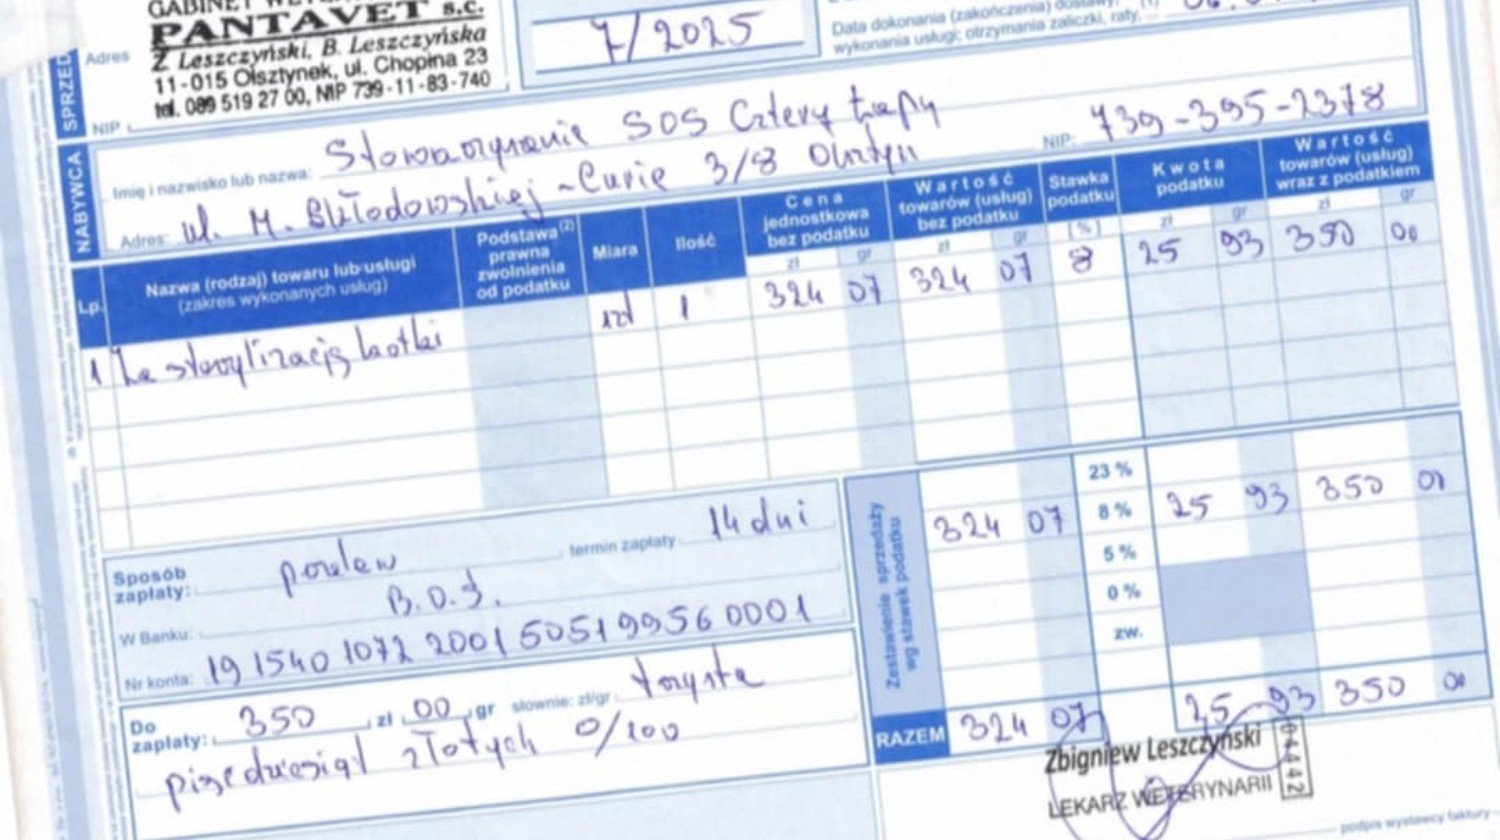 GABINET WETER
PANTAVET s.c.
Z Leszczyński, B. Leszczyńska
11-015 Olsztynek, ul. Chopina 23
tel. 089 519 27 00, NIP 739-11-83-740
SPRZED
Adres
NIP
7/2025
Data dokonania (zakończenia) dostawy,
wykonania usługi; otrzymania zaliczki, raty, ...
NABYWCA
Imię i nazwisko lub nazwa: Stowarzyszenie SOS Cztery Łapy
NIP: 739-395-2378
Adres: ul. M. Skłodowskiej-Curie 3/8 Olsztyn
Lp. Nazwa (rodzaj) towaru lub usługi (zakres wykonanych usług) Podstawa (2) prawna zwolnienia od podatku Miara Ilość Cena jednostkowa bez podatku Wartość towarów (usług) bez podatku Stawka podatku Kwota podatku Wartość towarów (usług) wraz z podatkiem
zł gr zł gr [%] zł gr zł gr
1 Za sterylizację kotki 1 324 07 324 07 8 25 93 350 00
Zestawienie sprzedaży wg stawek podatku
23 %
324 07 8 % 25 93 350 00
5 %
0 %
zw.
RAZEM 324 07 25 93 350 00
Sposób zapłaty: przelew termin zapłaty 14 dni
W Banku: B.O.Ś.
Nr konta: 19 1540 1072 2001 5051 9956 0001
Do zapłaty: 350 zł 00 gr słownie: zł/gr trzysta
pięćdziesiąt złotych 0/100
Zbigniew Leszczyński
LEKARZ WETERYNARII
04442
podpis wystawcy faktury